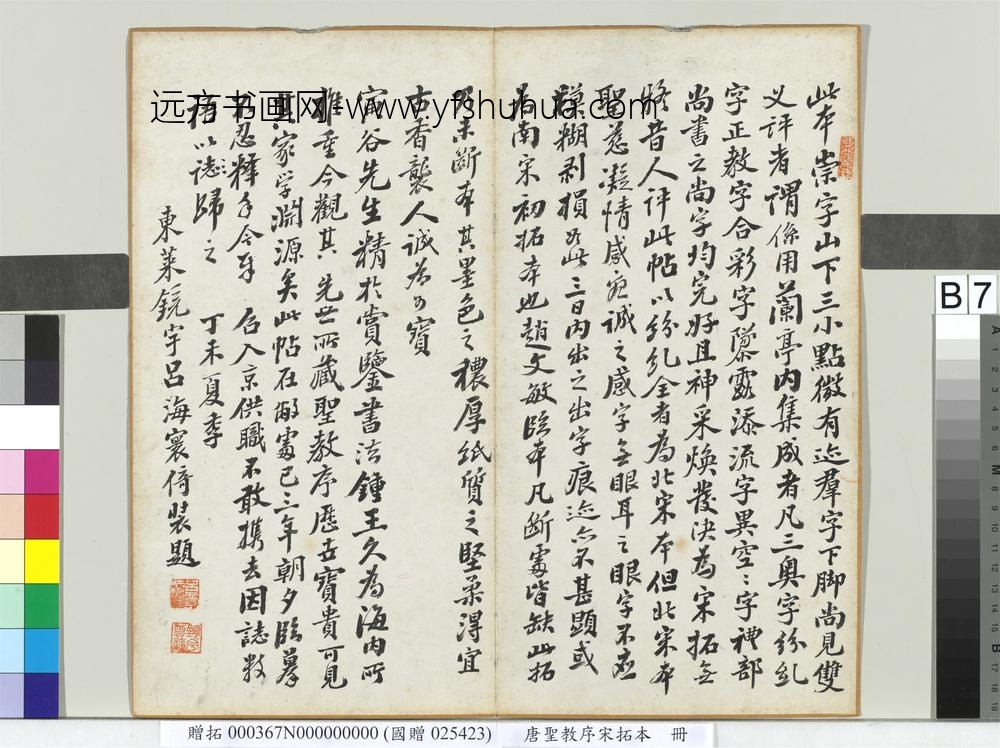 此本崇字山下三小點微有迹羣字下脚尚見雙
义評者謂係用蘭亭內集成者凡三奧字紛糺
字正教字合彩字隱露添流字異空〻字禮部
尚書之尚字均完好且神采煥發決為宋拓無
疑昔人評此帖以紛糺全者為北宋本但北宋本
聖慈凝情感於誠之感字無眼耳之眼字不應
模糊剥損如此三日內出之出字痕迹亦不甚顯或
為南宋初拓本也趙文敏臨本凡斷處皆缺此拓
是未斷本其墨色之穠厚紙質之堅柔渾宜
古香襲人誠為可寶
甯谷先生精於賞鑒書法鍾王久為海內所
推重今觀其先世所藏聖教序歷世寶貴可見
其家學淵源矣此帖在敝處已三年朝夕臨摹
不忍釋手今年召入京供職不敢攜去因誌數
語以誌歸之 丁未夏季
東萊鏡宇呂海寰倚裝題
远方书画网-www.yfshuhua.com
B 7
贈拓 000367N000000000 (國贈 025423) 唐聖教序宋拓本 冊